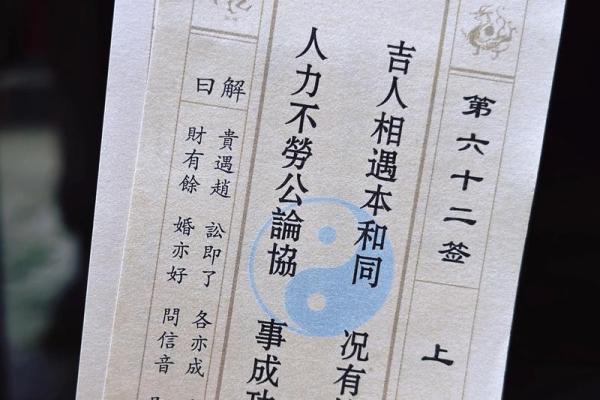 第六十二签 上
吉人相遇本和同 况有
人力不勞公論協 事成功
解曰
貴遇趙 訟即了 各亦成
財有餘 婚亦好 問信音